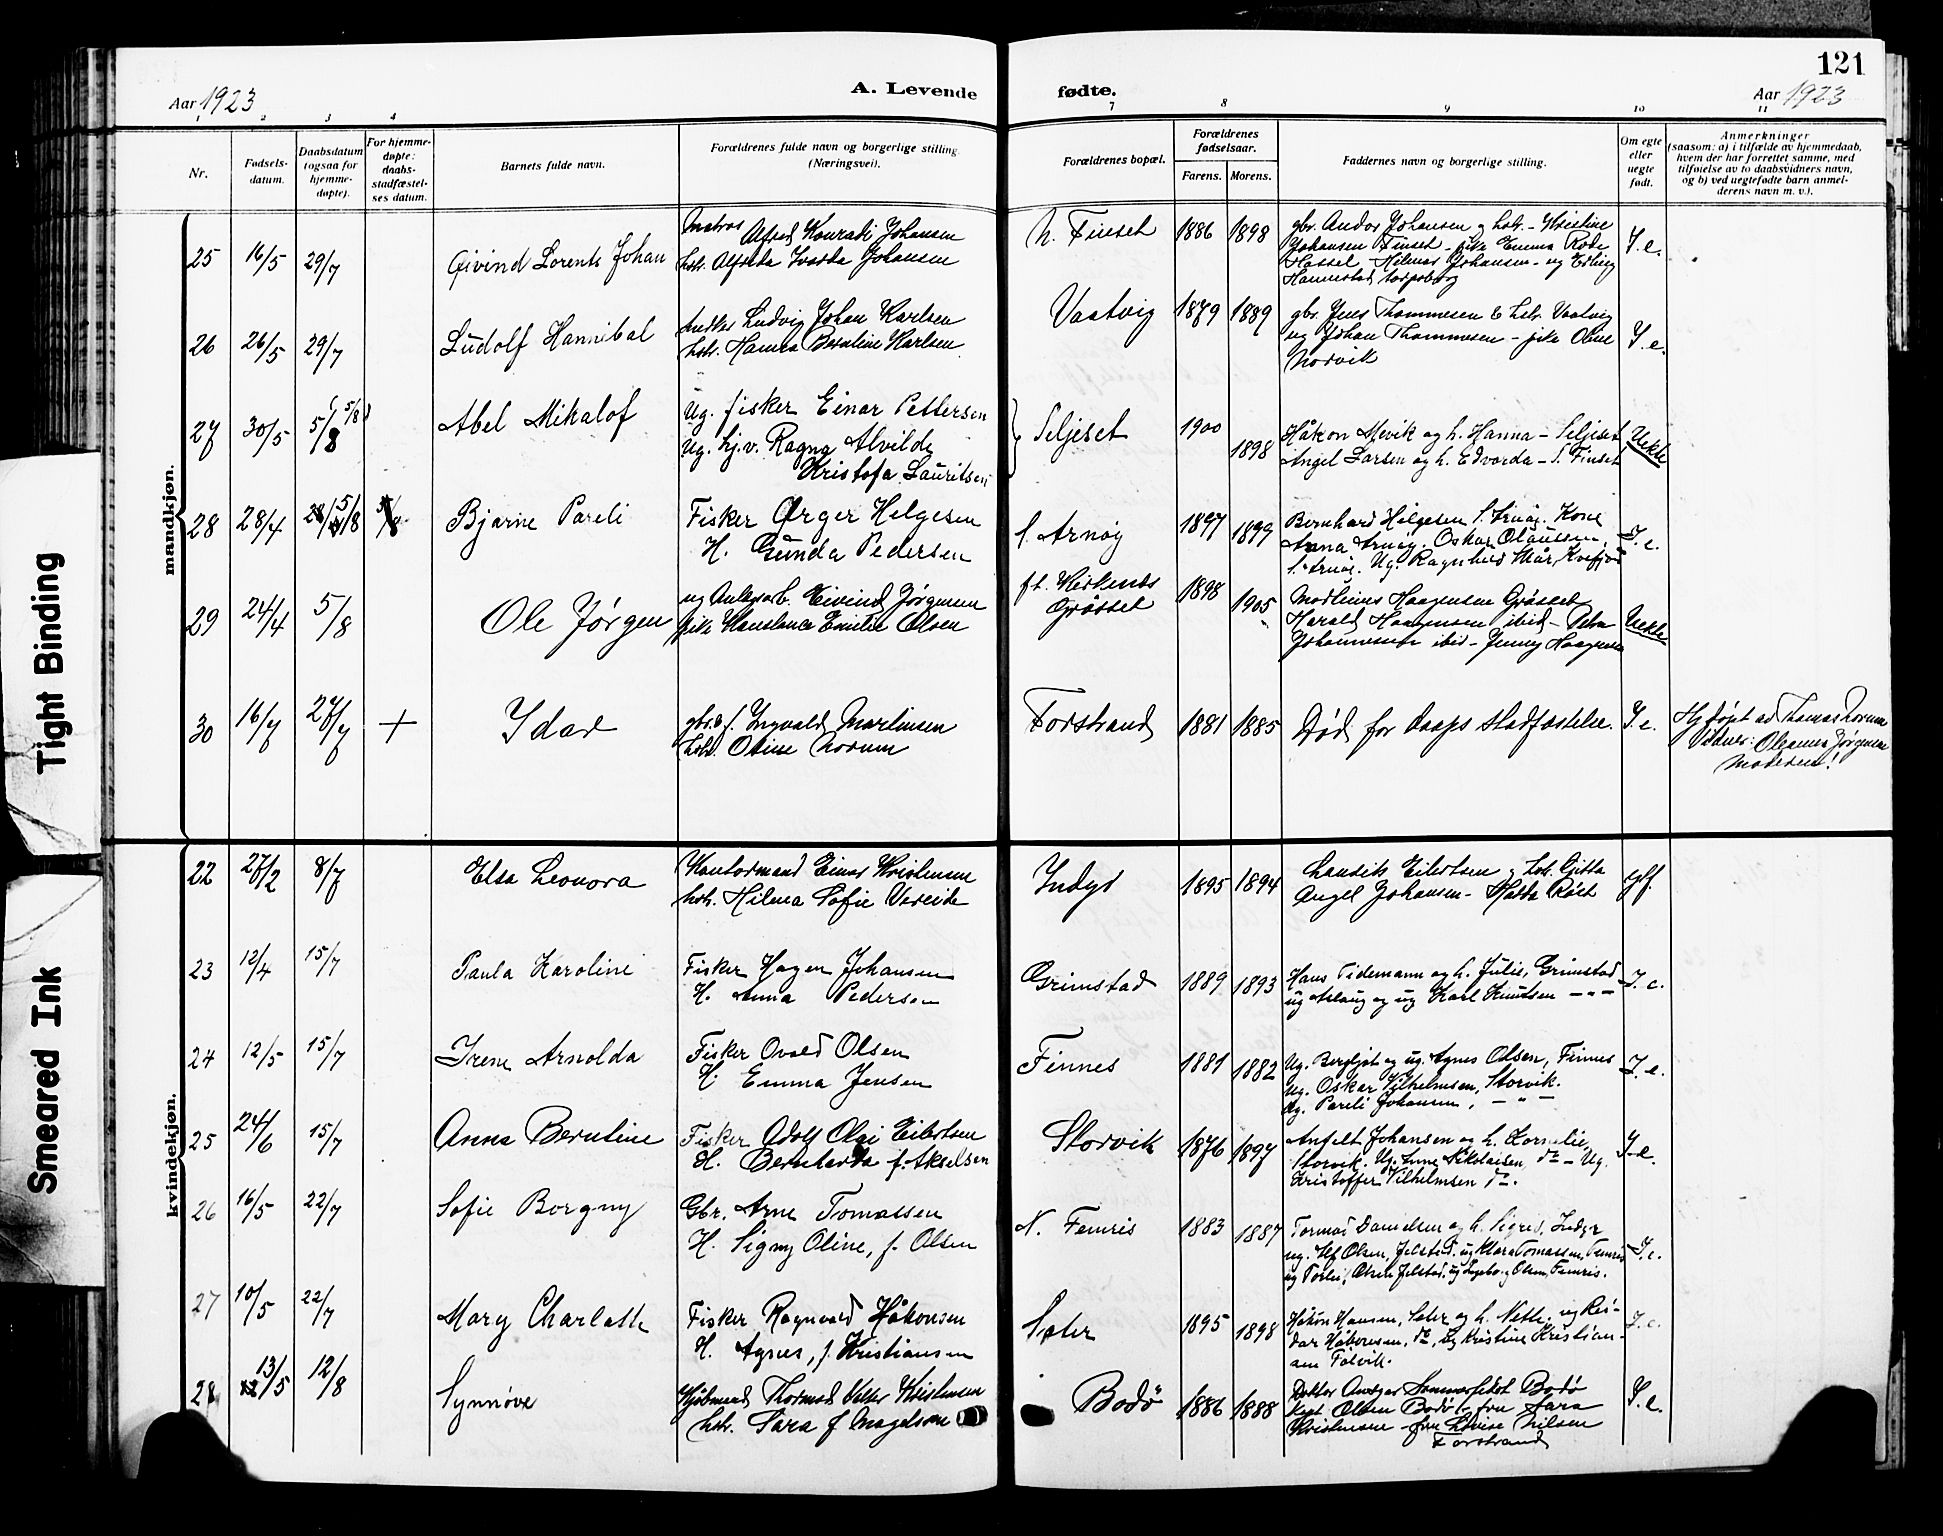 121
Aar 1923
A. Levende
fødte.
Aar 1923
1 2 3 4
7 8 9 10 11
Nr.
Fødsels-
datum.
Daabsdatum
(ogsaa for
hjemme-
døpte).
For hjemme-
døpte:
daabs-
stadfæstel-
ses datum.
Barnets fulde navn.
Forældrenes fulde navn og borgerlige stilling
(Næringsvei).
Forældrenes bopæl.
Forældrenes
fødselsaar.
Farens. Morens.
Faddernes navn og borgerlige stilling.
Om egte
eller
uegte
født.
Anmerkninger
(saasom: a) i tilfælde av hjemmedaab,
hvem der har forrettet samme, med
tilføielse av to daabsvidners navn,
og b) ved uegtefødte barn anmel-
derens navn m. v.).
mandkjøn.
25 16/5 29/7 Eivind Lorents Johan
Matros Alfred Konradi Johansen
hstr. Alfreda Johansen
N. Finset 1886 1898
gbr. Andor Johansen og hstr. Kristine
Johansen Finset - pike Emma
Hassel Hilmar Johansen - og Erling
I. e.
26 26/5 29/7 Ludolf Hannibal
Ludvig Johan Karlsen
hstr. Hanna Berntine Karlsen
Vaatvig 1879 1889
gbr. Jens Thommesen & hstr. Vaatvig
og Johan Thommesen - pike Oline
Norvik
I. e.
27 30/5 5/8 5/8 Abel Mikalof
Ug. fisker Einar Pettersen
Ug. hj.v. Ragna Alvilde
Kristofa Lauritsen
Seljeset 1900 1898
Håkon Mevik og h. Hanna - Seljeset
Angel Larsen og h. Edvarda - S. Finset
Uekte
28 28/4 5/8 Bjarne Pareli
Fisker Ørger Helgesen
H. Gunda Pedersen
S. Arnøy 1897 1899
Bernhard Helgesen S. Arnøy. Kone
Anna Arnøy. Oskar Olaussen,
S. Arnøy. Ug. Ragnhild
I. e.
29 24/4 5/8 Ole Jørgen
ug Anlegsarb. Eivind Jørgensen
pike Konstance Emilie Olsen
ft. Kirkenes
Grøsset
1898 1905
Haagensen Grøsset
Harald Haagensen ibid - Petra
Johannesen ibid - Jenny Haagensen
Uekte
30 16/7 27/7 + Idar
gbr. s. f. Ingvald Martinsen
hstr. Otine Norum
Forstrand 1881 1885
Død før daaps stadfæstelse.
I. e.
Hj. døpt av Thomas Norum
Vidner: Oleanna Jørgensen
Moderen!
kvindekjøn.
22 27/2 8/7 Elsa Leonora
Kontormand Einar Kristensen
hstr. Hilma Sofie Vereide
Indyr 1895 1894
Eilertsen og hstr. Gitta
Angel Johansen -
23 12/4 15/7 Paula Karoline
Fisker Hagen Johansen
H. Anna Pedersen
Grimstad 1889 1893
Hans Tidemann og h. Julie, Grimstad
ug Aslaug og ug Karl Knutsen — " —
I. e.
24 12/5 15/7 Irene Arnolda
Fisker Ovald Olsen
H. Emma Jensen
Finnes 1881 1882
Ug. Bergljot og ug. Agnes Olsen, Finnes
Ug. Oskar Vilhelmsen, Storvik.
Ug. Pareli Johansen, — " —
I. e.
25 24/6 15/7 Anna Berntine
Fisker Adolf Olai Eilertsen
H. Bernharda f. Akselsen
Storvik 1876 1897
Anfelt Johansen og h. Kornelie,
Storvik. Ug. Anne Nikolaisen, do - Ug.
Kristoffer Vilhelmsen do.
I. e.
26 16/5 22/7 Sofie Borgny
Gbr. Arne Tomassen
H. Signy Oline, f. Olsen
N. Femris 1883 1887
Tormod Danielsen og h. Sigrid, Indyr
ug. Olsen, Jelstad. ug Klara Tomassen, Femris
ug Torlei, Jelstad, ug Ingeborg Olsen, Femris.
I. e.
27 10/5 22/7 Mary Charlotte
Fisker Ragnvald Håkonsen
H. Agnes, f. Kristiansen
Sæter 1895 1898
Håkon Hansen, Sæter og h. Nette, ug Rei-
dar Håkonsen, do, Ug Kristine Kristian-
sen
I. e.
28 13/5 12/8 Synnøve
Thormod Kristensen
hstr. Sara f Magelsen
Bodö 1886 1888
Doktor Ansgar Sommerfeldt Bodö
Olsen Bodö - fru Sara
Kristensen - fru Lovise Nilsen
Forstrand
I. e.
Tight Binding
Smeared Ink